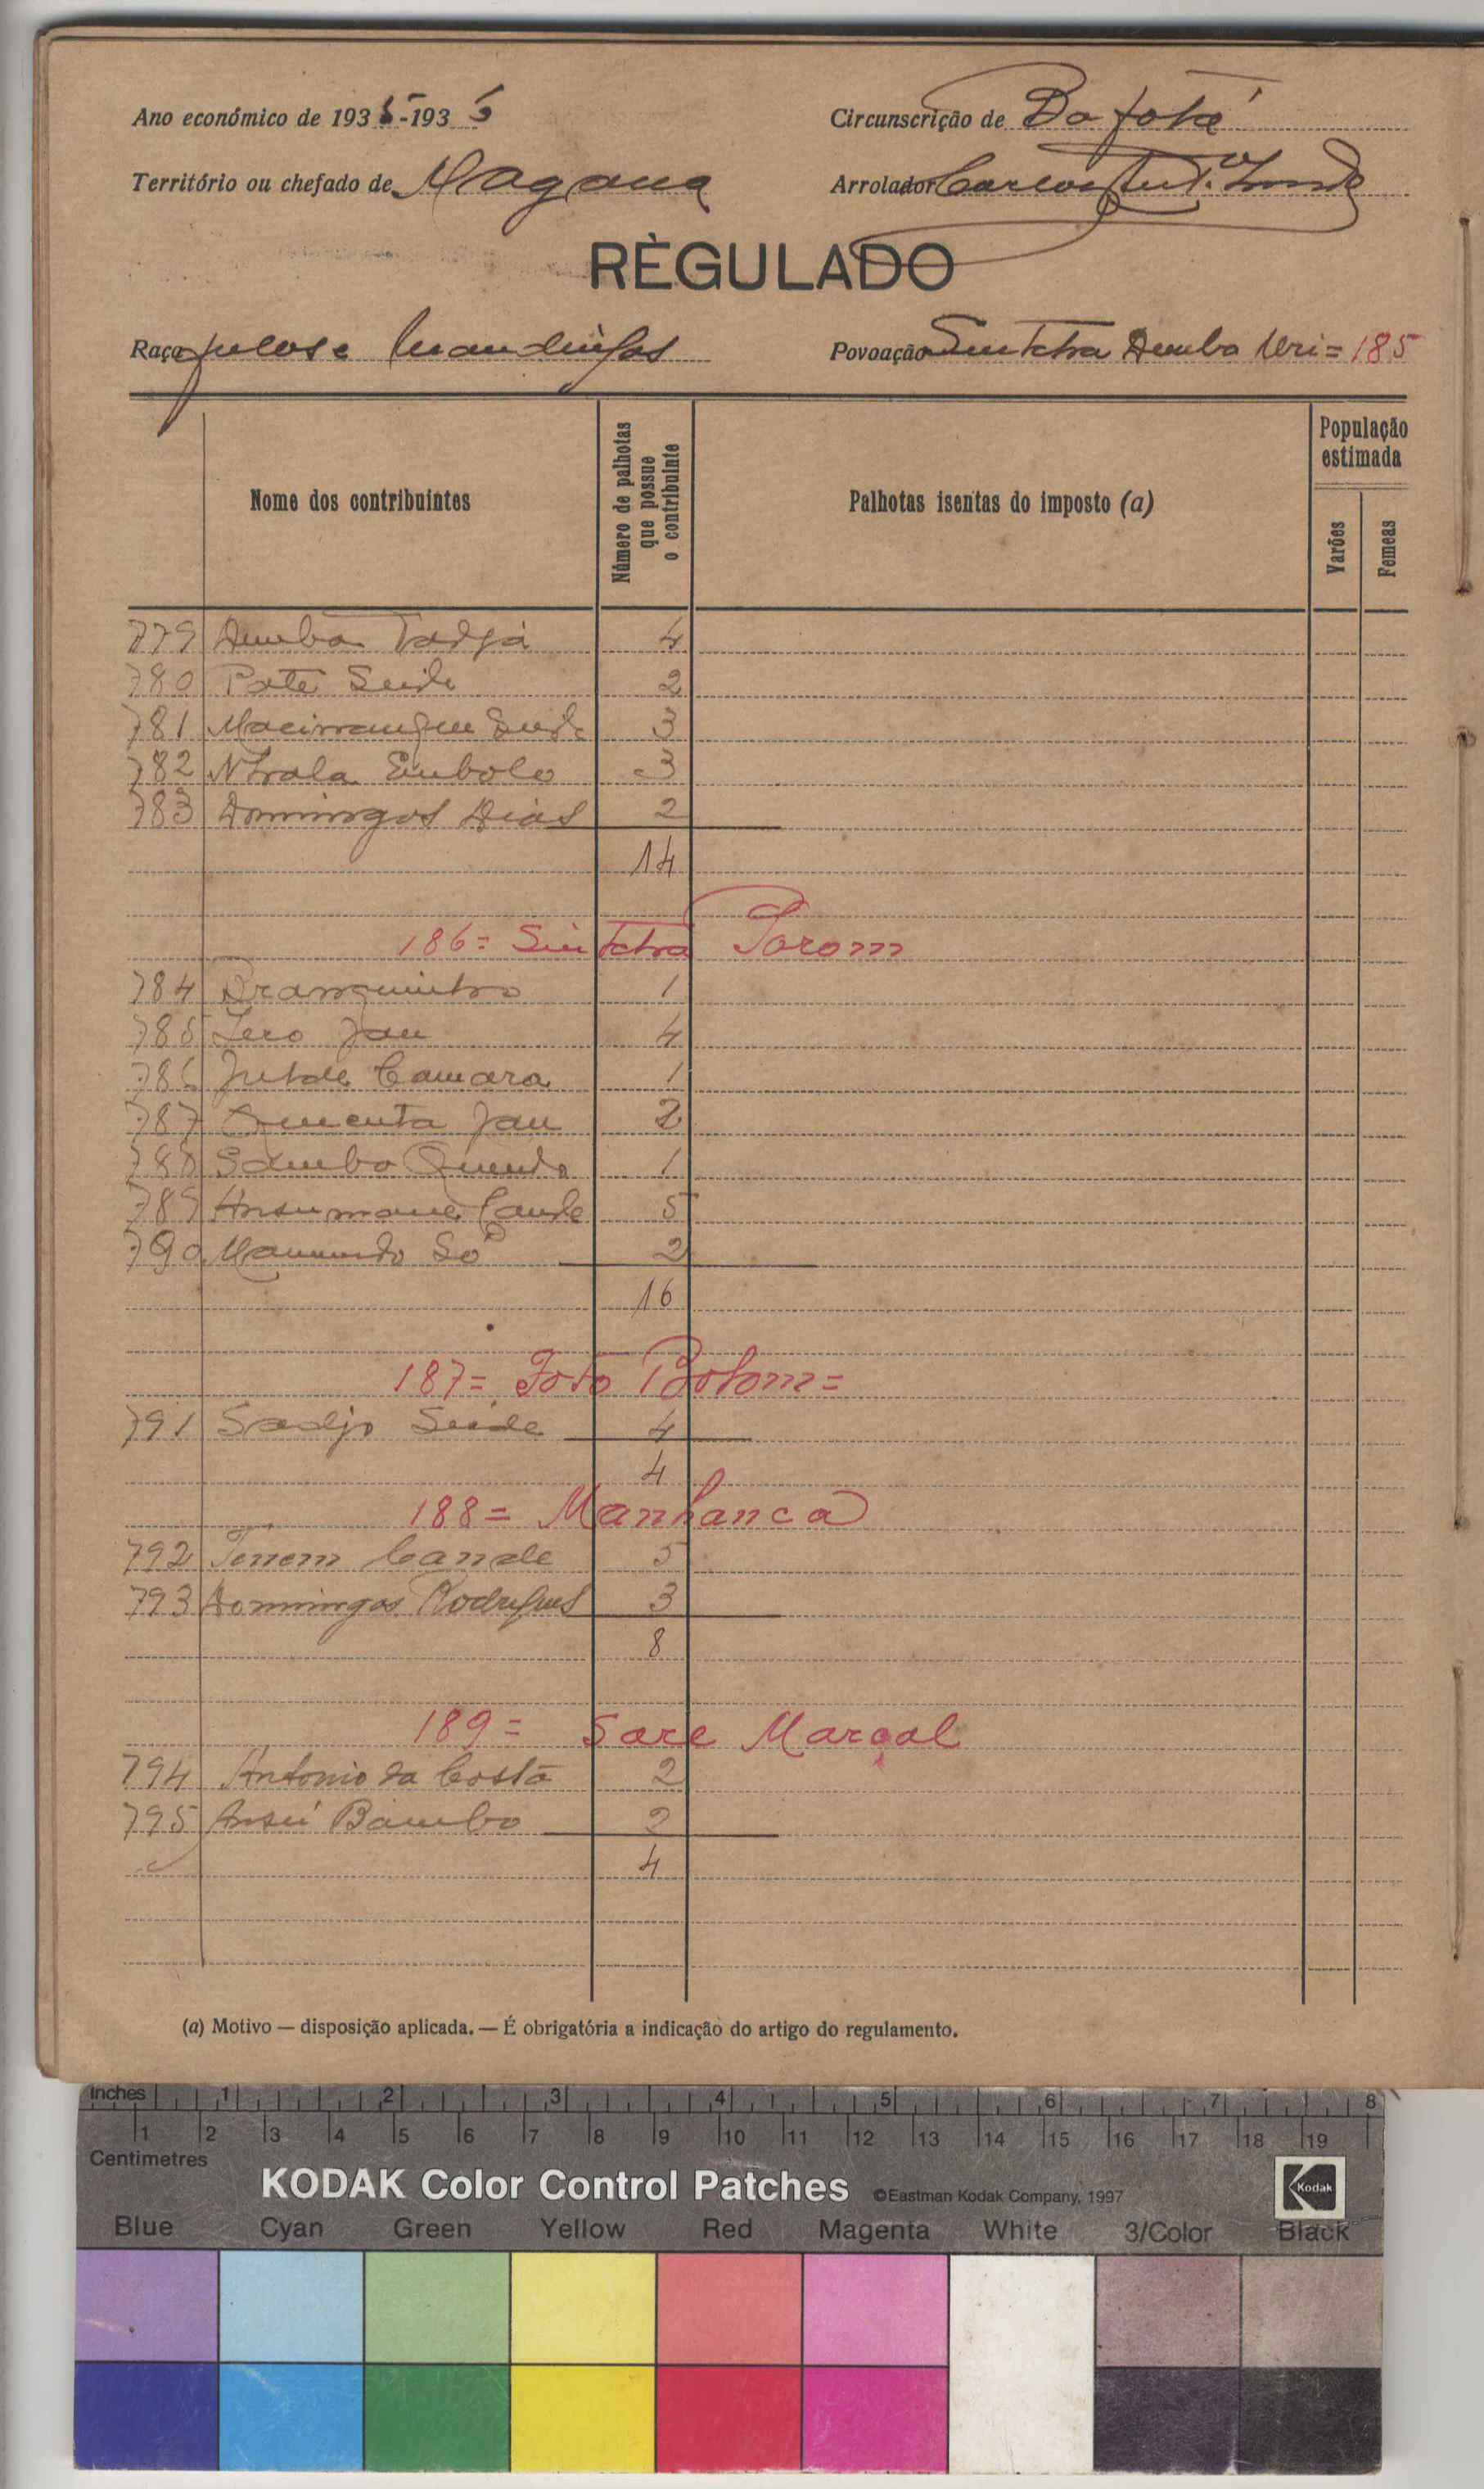 Ano económico de 1935-1935
Circunscrição de Bafatá
Território ou chefado de
Arrolador Carlos
RÉGULADO
Raça fulas e mandingas
Povoação Sintchra Demba Uri = 185
Nome dos contribuintes
Número de palhotas que possue o contribuinte
Palhotas isentas do imposto (a)
População estimada
Varões
Femeas
779 Demba 4
780 Paté Seide 2
781 Seide 3
782 Embalo 3
783 Domingos Dias 2
14
186 = Sintchra Porom
784 1
785 Jau 4
786 Camara 1
787 Jau 2
788 Samba 1
789 Ansumane Cande 5
790 Mamudo So 2
16
187 = Foto Botom =
791 Sadjo Seide 4
4
188 = Manhanca
792 Tenem Cande 5
793 Domingos Rodrigues 3
8
189 = Sare Marçal
794 Antonio da Costa 2
795 Ansú Bambo 2
4
(a) Motivo — disposição aplicada. — É obrigatória a indicação do artigo do regulamento.
Inches 1 2 3 4 5 6 7 8
1 2 3 4 5 6 7 8 9 10 11 12 13 14 15 16 17 18 19
Centimetres
KODAK Color Control Patches ©Eastman Kodak Company, 1997 Kodak
Blue Cyan Green Yellow Red Magenta White 3/Color Black